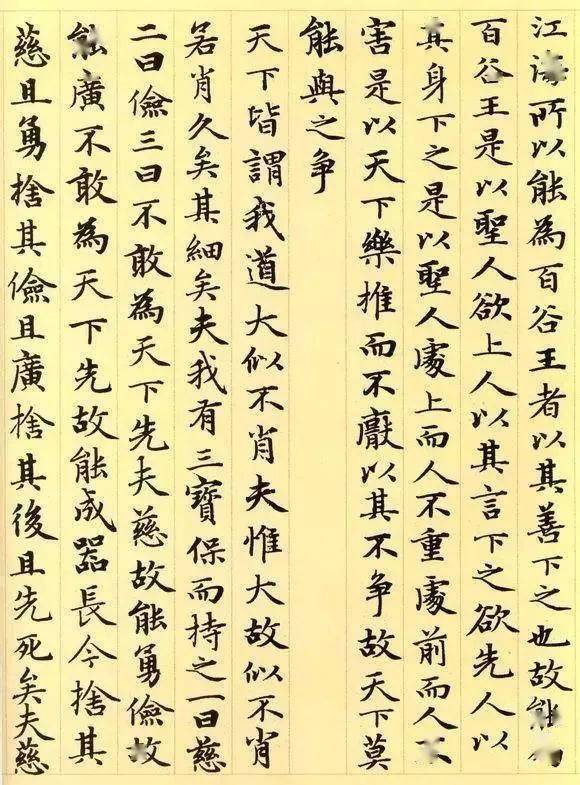 江海所以能為百谷王者以其善下之也故能
百谷王是以聖人欲上人以其言下之欲先人以
其身下之是以聖人處上而人不重處前而人不
害是以天下樂推而不厭以其不争故天下莫
能與之争
天下皆謂我道大似不肖夫惟大故似不肖
若肖久矣其細矣夫我有三寶保而持之一曰慈
二曰儉三曰不敢為天下先夫慈故能勇儉故
能廣不敢為天下先故能成器長今捨其
慈且勇捨其儉且廣捨其後且先死矣夫慈